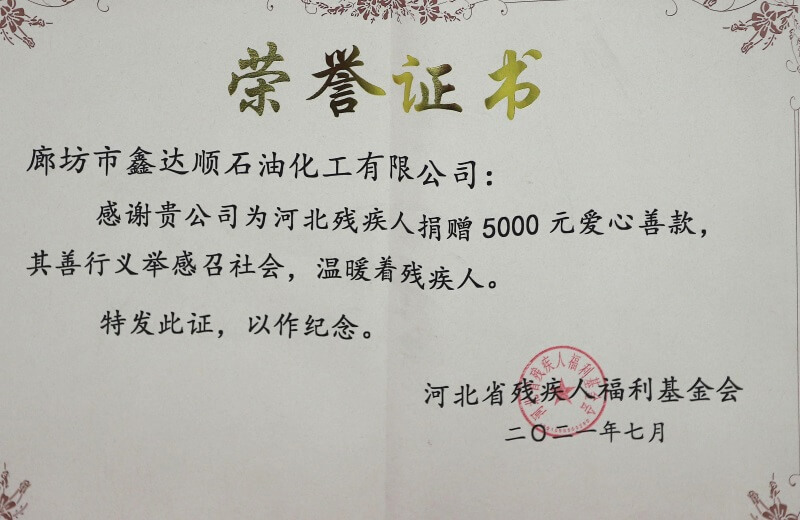 荣誉证书
廊坊市鑫达顺石油化工有限公司：
感谢贵公司为河北残疾人捐赠5000元爱心善款，
其善行义举感召社会，温暖着残疾人。
特发此证，以作纪念。
河北省残疾人福利基金会
河北省残疾人福利基金会
二〇二一年七月